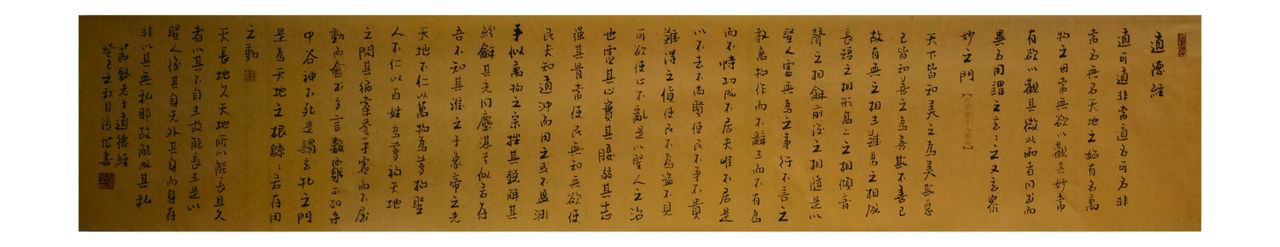 道德經
道可道非常道名可名非
常名無名天地之始有名萬
物之母常無欲以觀其妙常
有欲以觀其徼此兩者同出而
異名同謂之玄玄之又玄眾
妙之門
天下皆知美之為美斯惡
已皆知善之為善斯不善已
故有無之相生難易之相成
長短之相形高下之相傾音
聲之相和前後之相隨是以
聖人處無為之事行不言之
教萬物作而不辭生而不有為
而不恃功成不居夫唯不居是
以不去不尚賢使民不爭不貴
難得之貨使民不為盜不見
可欲使心不亂是以聖人之治
也虛其心實其腹弱其志
強其骨常使民無知無欲使
民夫知道沖而用之或不盈淵
乎似萬物之宗挫其銳解其
紛龢其光同塵湛兮似若存
吾不知其誰之子象帝之先
天地不仁以萬物為芻狗聖
人不仁以百姓為芻狗天地
之間其猶橐籥乎虛而不屈
動而愈出多言數窮不如守
中谷神不死是謂玄牝之門
是為天地之根綿綿若存用
之勤
天長地久天地所以能長且久
者以其不自生故能長生是以
聖人後其身先外其身而身存
非以其無私耶故能成其私
老子道德經